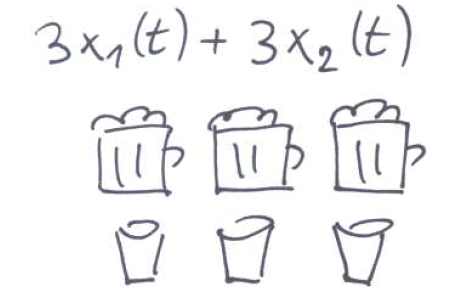 3x₁(t) + 3x₂(t)